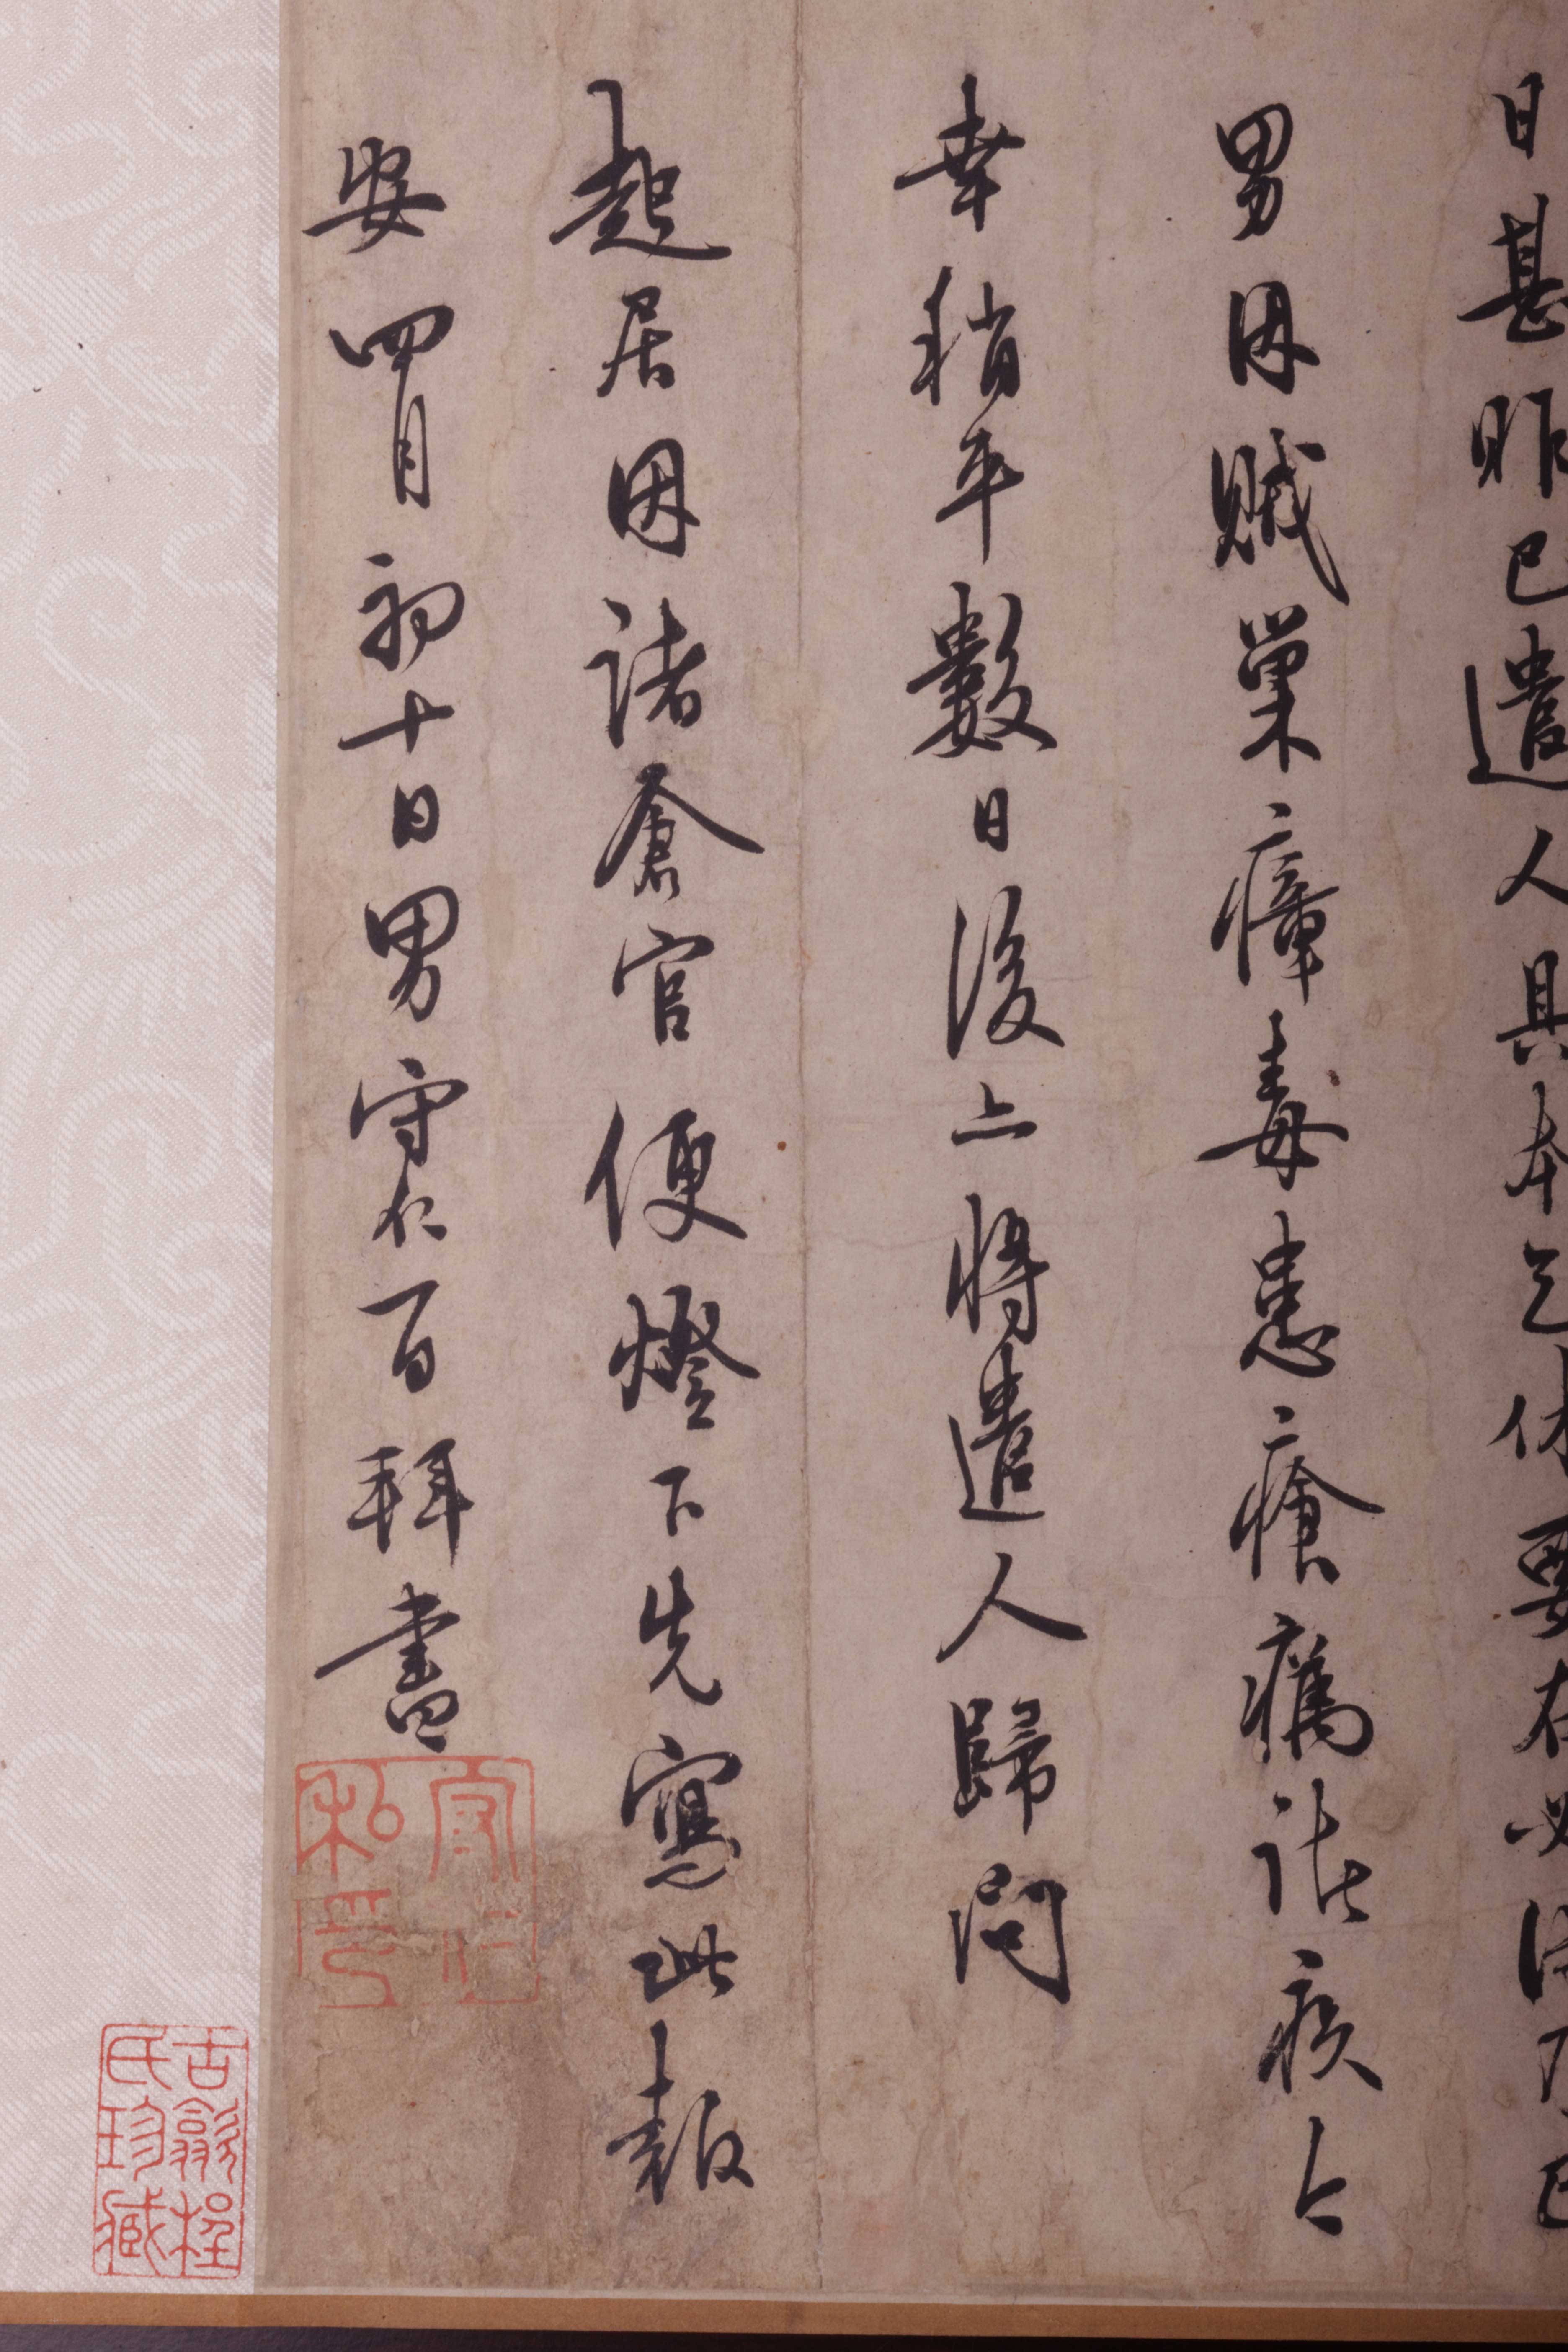 日甚昨已遣人具本乞休要在必得乃已
男因賊巢瘴毒患瘡癘諸疾今
幸稍平數日後亦將遣人歸問
起居因諸倉官便燈下先寫此報
安四月初十日男守仁百拜書
家
私印
古歙程
氏珍藏